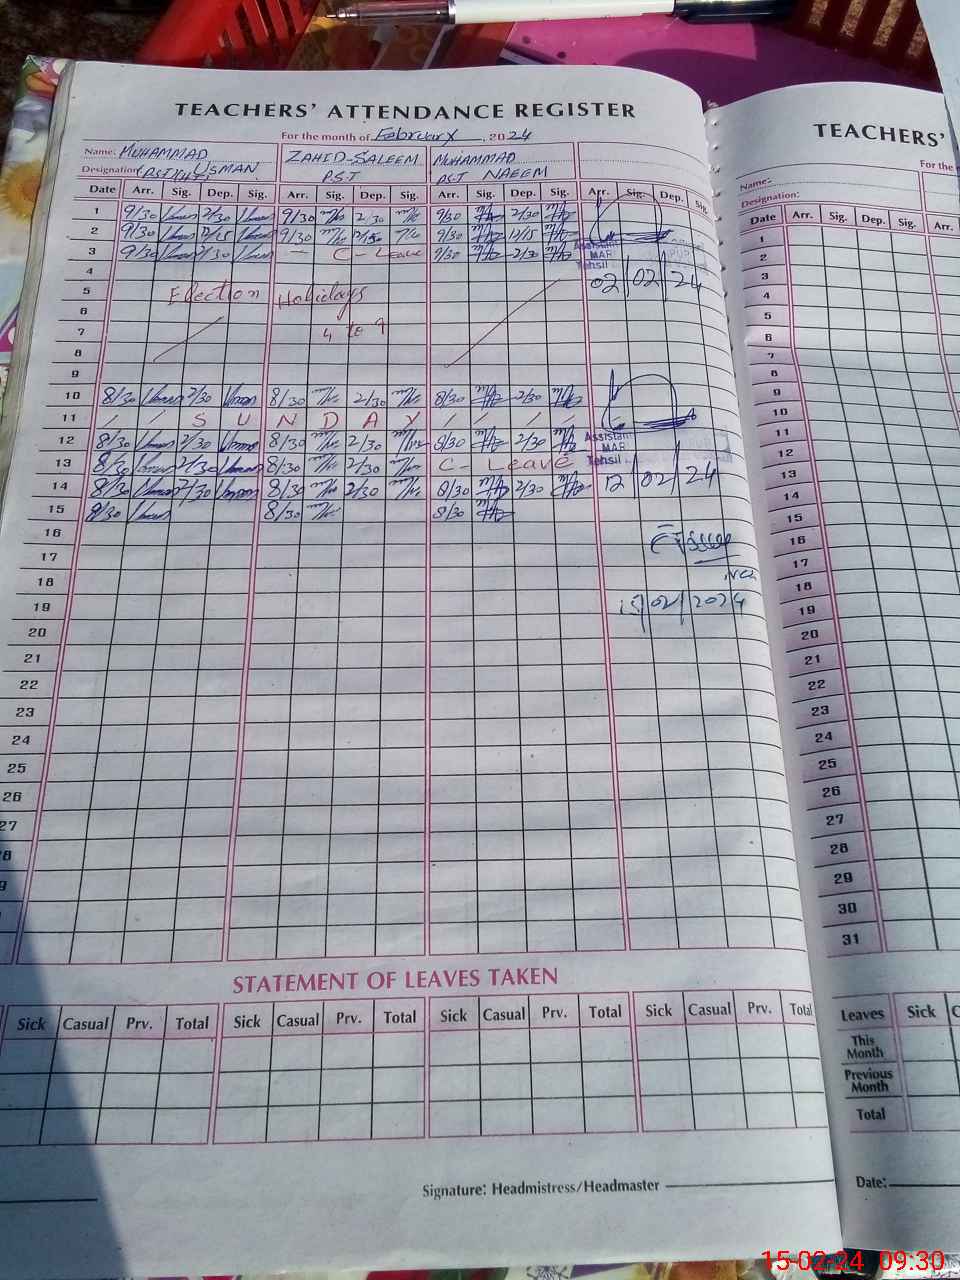 TEACHERS' ATTENDANCE REGISTER
For the month of February 2024
Name: MUHAMMAD USMAN ZAHID SALEEM MUHAMMAD NAEEM
Designation: P.S.T P.S.T
Date Arr. Sig. Dep. Sig. Arr. Sig. Dep. Sig. Arr. Sig. Dep. Sig. Arr. Sig. Dep. Sig.
1 9/30 2/30 9/30 2/30 9/30 2/30
2 9/30 12/15 9/30 9/30 12/15
3 9/30 2/30 - C - Leave 9/30 2/30
Assistant
MAR
Tehsil
02/02/24
4
5 Election Holidays
6
7 4 to 9
8
9
10 8/30 2/30 8/30 2/30 8/30 2/30
11 / / S U N D A Y / / / /
12 8/30 2/30 8/30 2/30 8/30 2/30
13 8/30 2/30 8/30 2/30 C - Leave
14 8/30 2/30 8/30 2/30 8/30 2/30
15 8/30 8/30 8/30
Assistant
MAR
Tehsil
12/02/24
16
17
18
19
15/02/2024
20
21
22
23
24
25
26
27
STATEMENT OF LEAVES TAKEN
Sick Casual Prv. Total Sick Casual Prv. Total Sick Casual Prv. Total Sick Casual Prv. Total
Signature: Headmistress/Headmaster
TEACHERS'
For the
Name:
Designation:
Date Arr. Sig. Dep. Sig. Arr.
1
2
3
4
5
6
7
8
9
10
11
12
13
14
15
16
17
18
19
20
21
22
23
24
25
26
27
28
29
30
31
Leaves Sick
This Month
Previous Month
Total
Date:
15-02-24 09:30